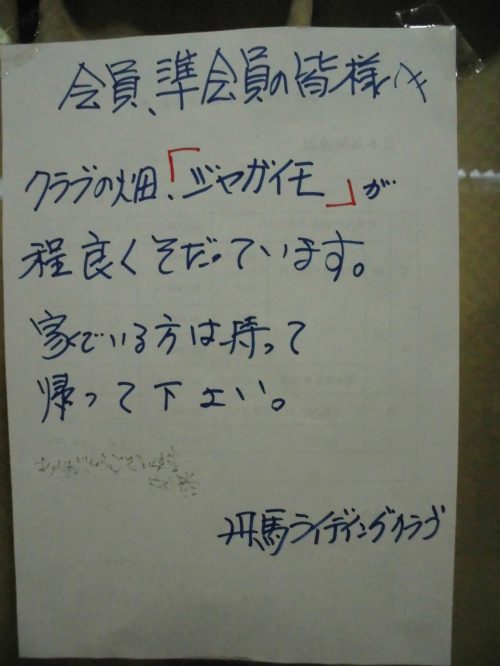 会員、準会員の皆様へ
クラブの畑、「ジャガイモ」が
程良くそだっています。
家でいる方は持って
帰って下さい。
丹馬ライディングクラブ